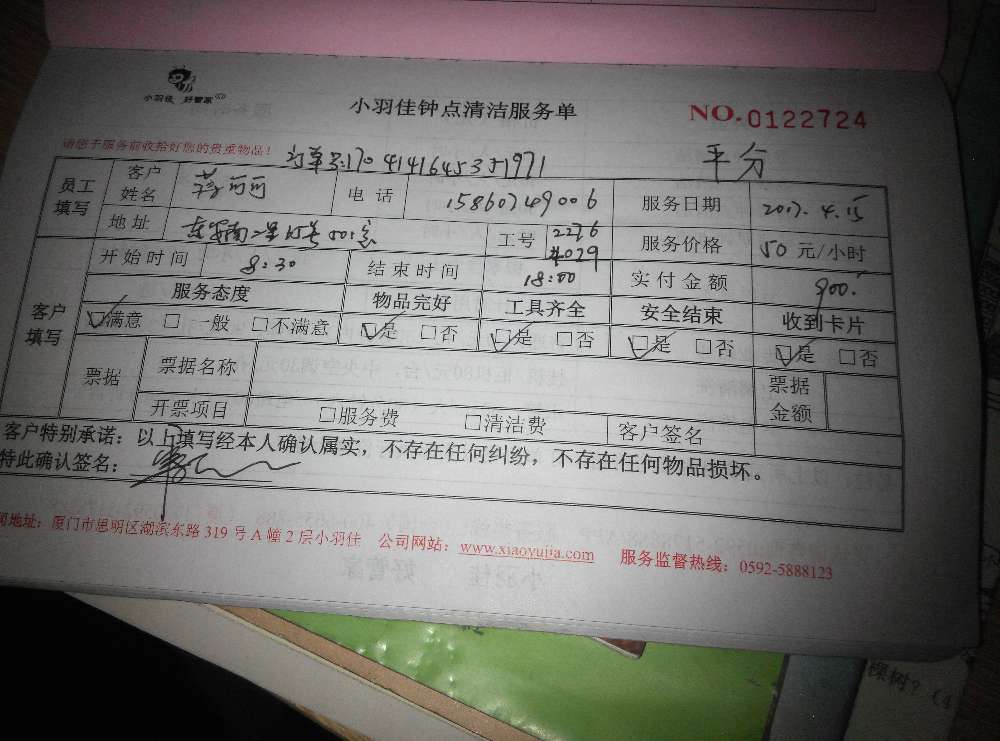 小羽佳 好管家
小羽佳钟点清洁服务单
NO.0122724
请您于服务前收拾好您的贵重物品!
订单号:1704141645357971
平分
员工填写
客户姓名
电话 15860749006
服务日期 2017.4.15
地址
工号 2276 4079
服务价格 50元/小时
客户填写
开始时间 8:30
结束时间 18:00
实付金额 900.
服务态度 物品完好 工具齐全 安全结束 收到卡片
☑满意 □一般 □不满意 ☑是 □否 ☑是 □否 ☑是 □否 ☑是 □否
票据 票据名称 票据金额
开票项目 □服务费 □清洁费 客户签名
客户特别承诺:以上填写经本人确认属实,不存在任何纠纷,不存在任何物品损坏。
特此确认签名:
地址:厦门市思明区湖滨东路319号A幢2层小羽佳 公司网站:www.xiaoyujia.com 服务监督热线:0592-5888123
棵树?(4